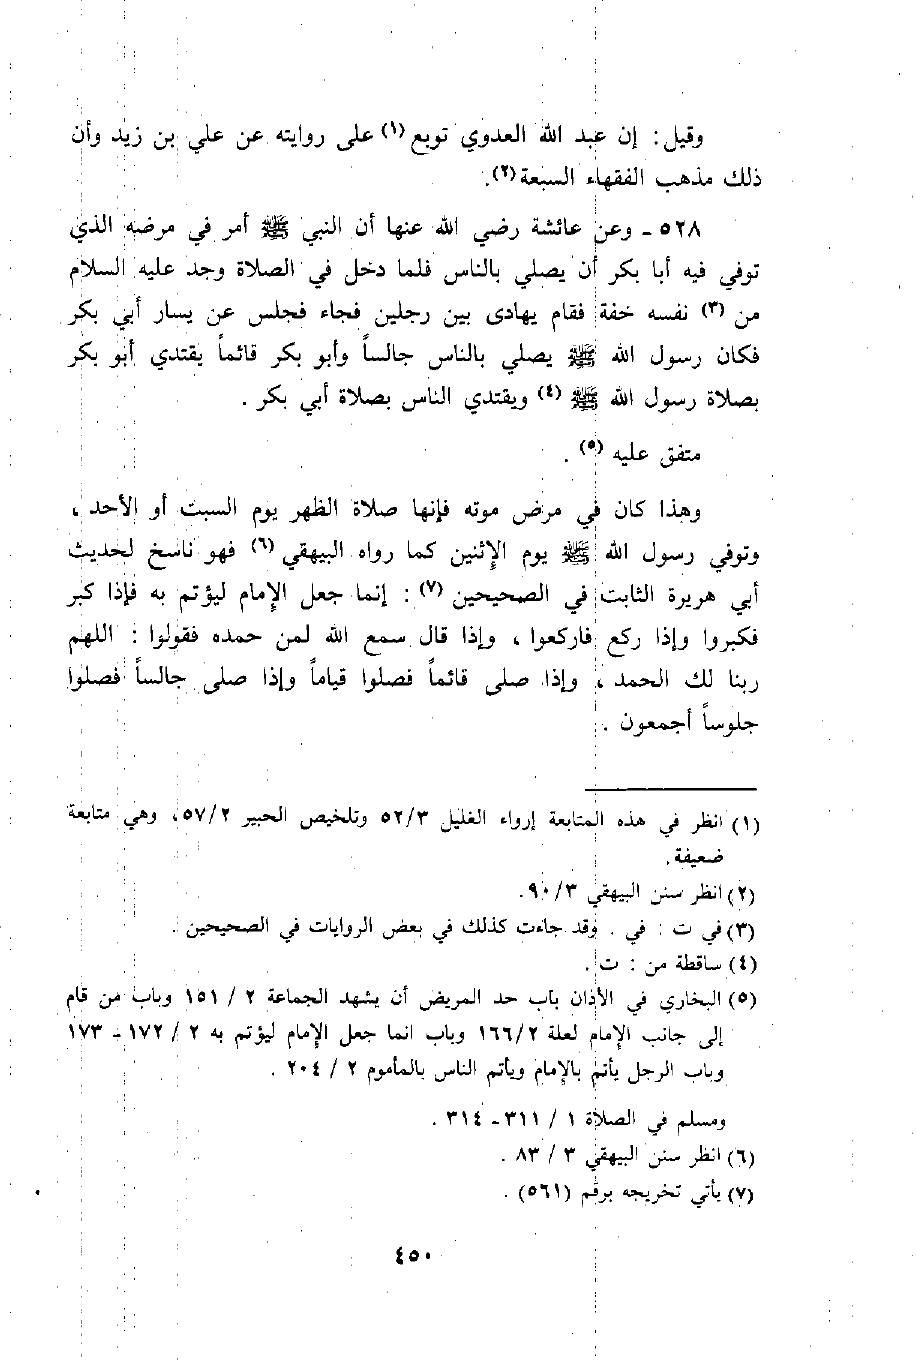 وقيل : إن عبد الله العدوي توبع (١) على روايته عن علي بن زيد وأن
ذلك مذهب الفقهاء السبعة (٢).
٥٢٨ - وعن عائشة رضي الله عنها أن النبي ﷺ أمر في مرضه الذي
توفي فيه أبا بكر أن يصلي بالناس فلما دخل في الصلاة وجد عليه السلام
من (٣) نفسه خفة فقام يهادى بين رجلين فجاء فجلس عن يسار أبي بكر
فكان رسول الله ﷺ يصلي بالناس جالساً وأبو بكر قائماً يقتدي أبو بكر
بصلاة رسول الله ﷺ (٤) ويقتدي الناس بصلاة أبي بكر .
متفق عليه (٥) .
وهذا كان في مرض موته فإنها صلاة الظهر يوم السبت أو الأحد ،
وتوفي رسول الله ﷺ يوم الإثنين كما رواه البيهقي (٦) فهو ناسخ لحديث
أبي هريرة الثابت في الصحيحين (٧) : إنما جعل الإمام ليؤتم به فإذا كبر
فكبروا وإذا ركع فاركعوا ، وإذا قال سمع الله لمن حمده فقولوا : اللهم
ربنا لك الحمد ، وإذا صلى قائماً فصلوا قياماً وإذا صلى جالساً فصلوا
جلوساً أجمعون .
(١) انظر في هذه المتابعة إرواء الغليل ٥٢/٣ وتلخيص الحبير ٥٧/٢، وهي متابعة
ضعيفة.
(٢) انظر سنن البيهقي ٩٠/٣.
(٣) في ت : في . وقد جاءت كذلك في بعض الروايات في الصحيحين .
(٤) ساقطة من : ت .
(٥) البخاري في الأذان باب حد المريض أن يشهد الجماعة ٢ / ١٥١ وباب من قام
إلى جانب الإمام لعلة ١٦٦/٢ وباب انما جعل الإمام ليؤتم به ٢ / ١٧٢ - ١٧٣
وباب الرجل يأتم بالإمام ويأتم الناس بالمأموم ٢ / ٢٠٤ .
ومسلم في الصلاة ١ / ٣١١ - ٣١٤ .
(٦) انظر سنن البيهقي ٣ / ٨٣ .
(٧) يأتي تخريجه برقم (٥٦١) .
٤٥٠